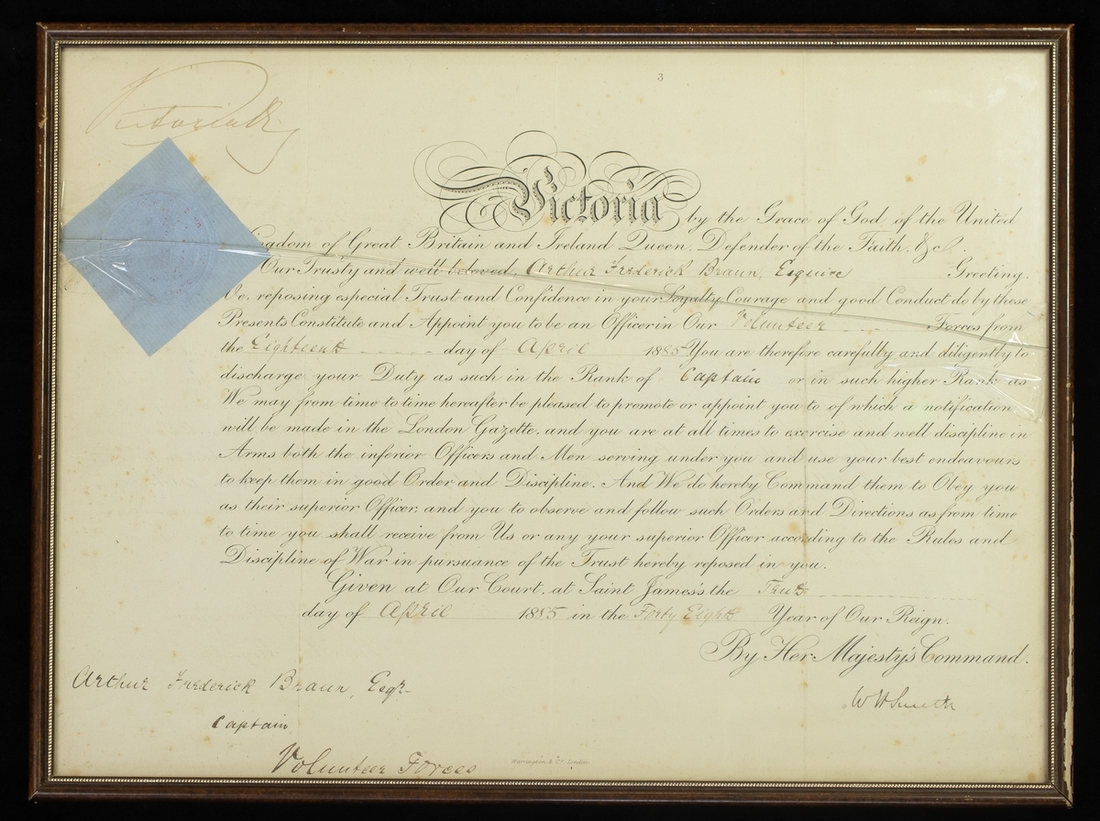 3
Victoria R
Victoria by the Grace of God, of the United
Kingdom of Great Britain and Ireland Queen, Defender of the Faith, &c.
Our Trusty and well beloved, Arthur Frederick Braun, Esquire Greeting.
We, reposing especial Trust and Confidence in your Loyalty, Courage and good Conduct do by these
Presents Constitute and Appoint you to be an Officer in Our Volunteer Forces from
the Eighteenth day of April 1885 You are therefore carefully and diligently to
discharge your Duty as such in the Rank of Captain or in such higher Rank as
We may from time to time hereafter be pleased to promote or appoint you to of which a notification
will be made in the London Gazette, and you are at all times to exercise and well discipline in
Arms both the inferior Officers and Men serving under you and use your best endeavours
to keep them in good Order and Discipline. And We do hereby Command them to Obey you
as their superior Officer, and you to observe and follow such Orders and Directions as from time
to time you shall receive from Us or any your superior Officer according to the Rules and
Discipline of War in pursuance of the Trust hereby reposed in you.
Given at Our Court, at Saint James's the
day of April 1885 in the Forty Eighth Year of Our Reign.
By Her Majesty's Command.
Arthur Frederick Braun, Esqr.
W H Smith
Captain
Volunteer Forces
Warrington & Co. London